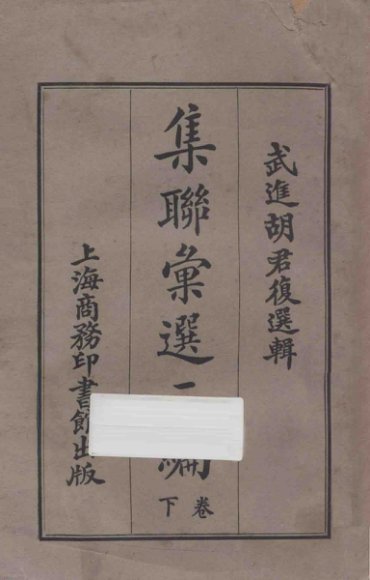 武進胡君復選輯
集聯彙選編
卷下
上海商務印書館出版